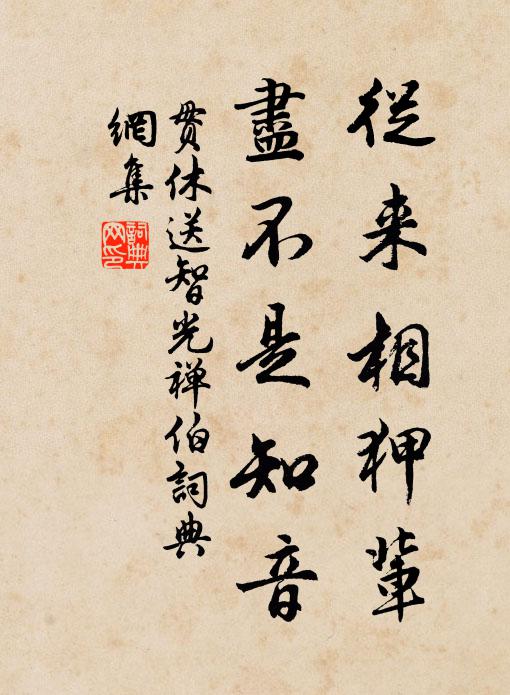 從来相狎輩
盡不是知音
貫休送智光禅伯詞典
網集
詞典
网印